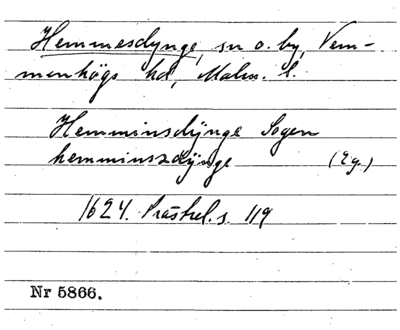 Hemmesdynge, sn o. by, Vem-
menhögs hd, Malm. l.
Hemminsdÿnge Sogen
hemminszdÿnge (Eg.)
1624. Prästrel. s. 119
Nr 5866.